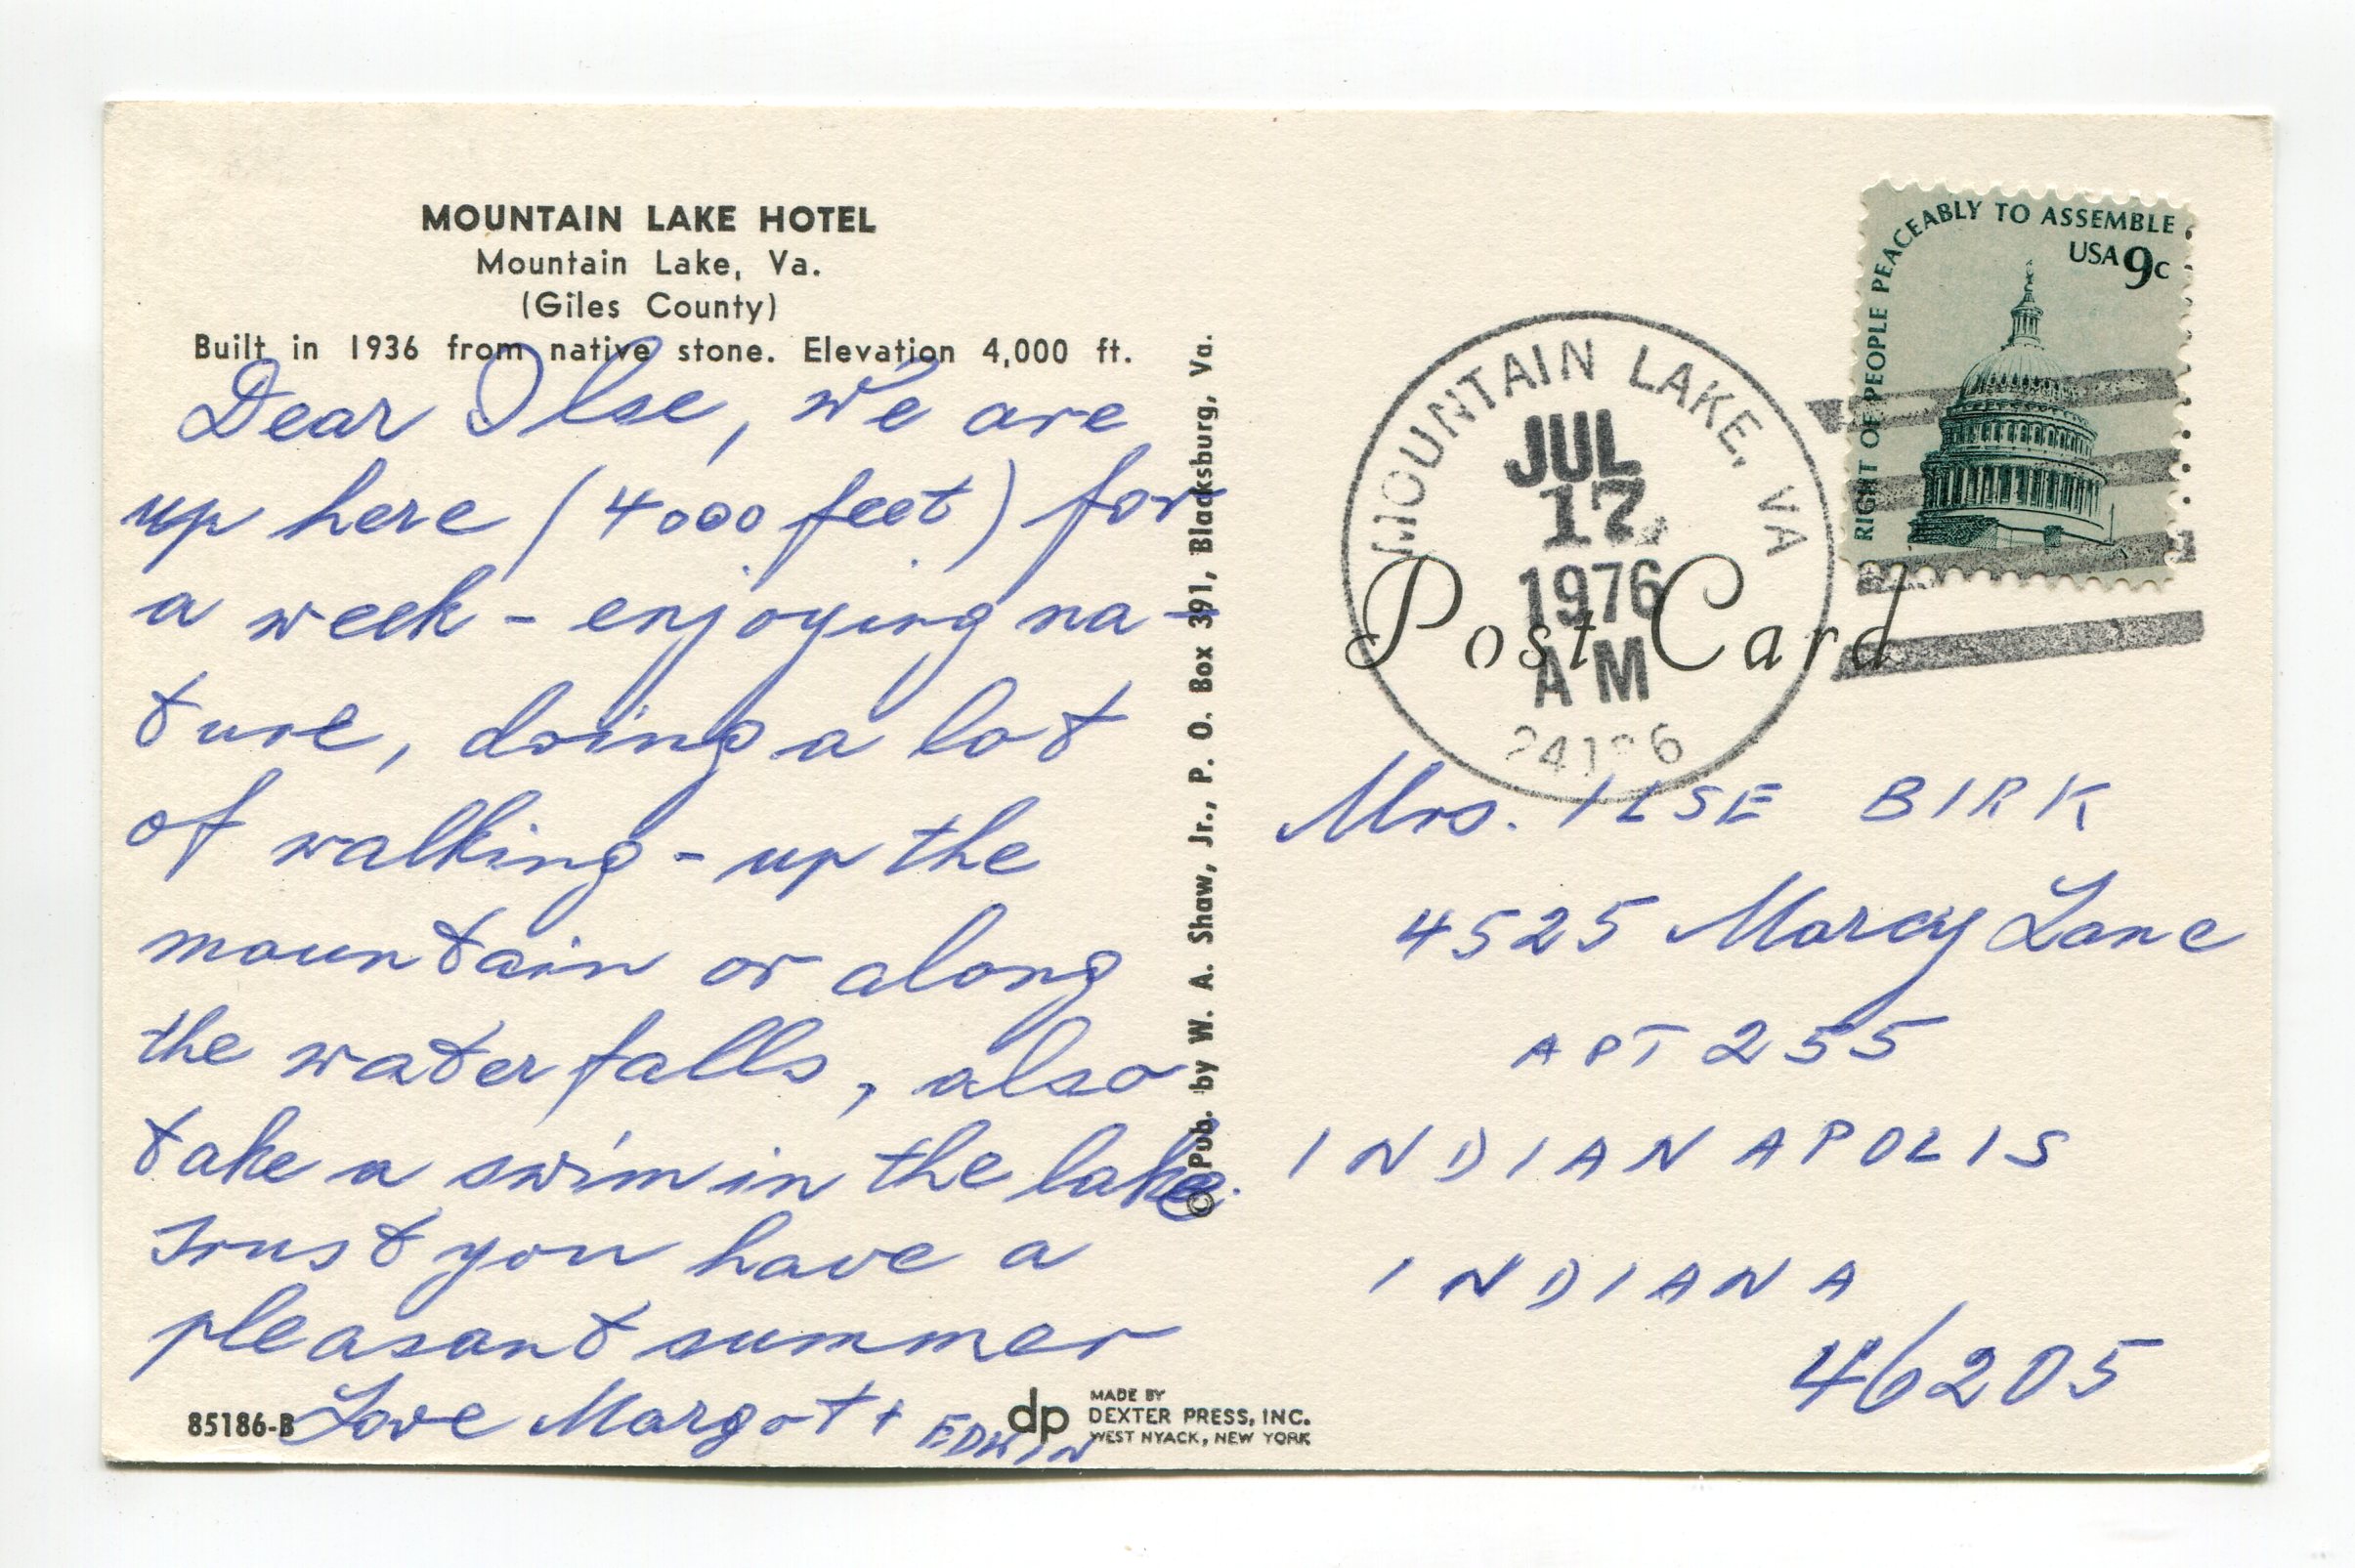 MOUNTAIN LAKE HOTEL
Mountain Lake, Va.
(Giles County)
Built in 1936 from native stone. Elevation 4,000 ft.
Dear Ilse, we are
up here (4000 feet) for
a week - enjoying na-
ture, doing a lot
of walking - up the
mountain or along
the waterfalls, also
take a swim in the lake.
Trust you have a
pleasant summer
Love Margot + EDWIN
85186-B
dp
MADE BY
DEXTER PRESS, INC.
WEST NYACK, NEW YORK
© Pub. by W. A. Shaw, Jr., P. O. Box 391, Blacksburg, Va.
RIGHT OF PEOPLE PEACEABLY TO ASSEMBLE
USA 9c
MOUNTAIN LAKE, VA
JUL
17
1976
AM
Post Card
Mrs. ILSE BIRK
4525 Marcy Lane
APT 255
INDIANAPOLIS
INDIANA
46205